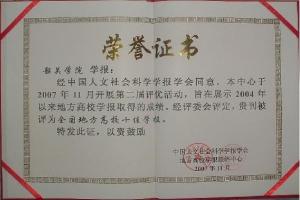 荣誉证书
韶关学院 学报：
经中国人文社会科学学报学会同意，本中心于
2007年11月开展第二届评优活动，旨在展示2004年
以来地方高校学报取得的成绩。经评委会评定，贵刊被
评为全国地方高校十佳学报。
特发此证，以资鼓励
中国人文社会科学学报学会
地方高校学报联络中心
2007年11月